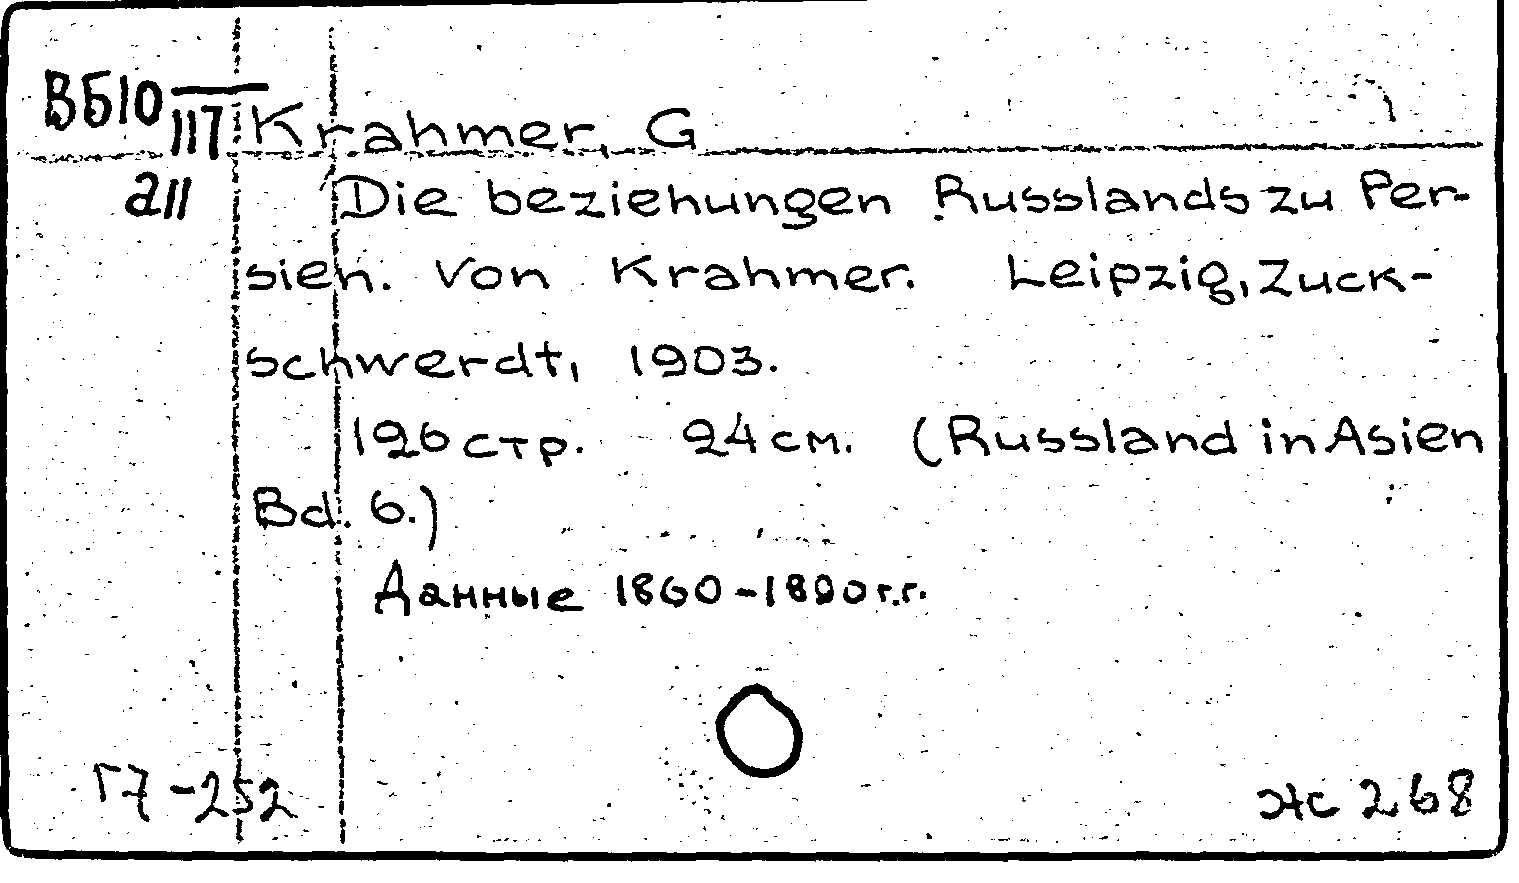 ВБ10
117 Krahmer, G
а11 Die beziehungen Russlands zu Per-
sien. Von Krahmer. Leipzig, Zuck-
schwerdt, 1903.
126 стр. 24 см. (Russland in Asien
Bd. 6.)
Данные 1860-1890 г.г.
Г7-252
жс 268